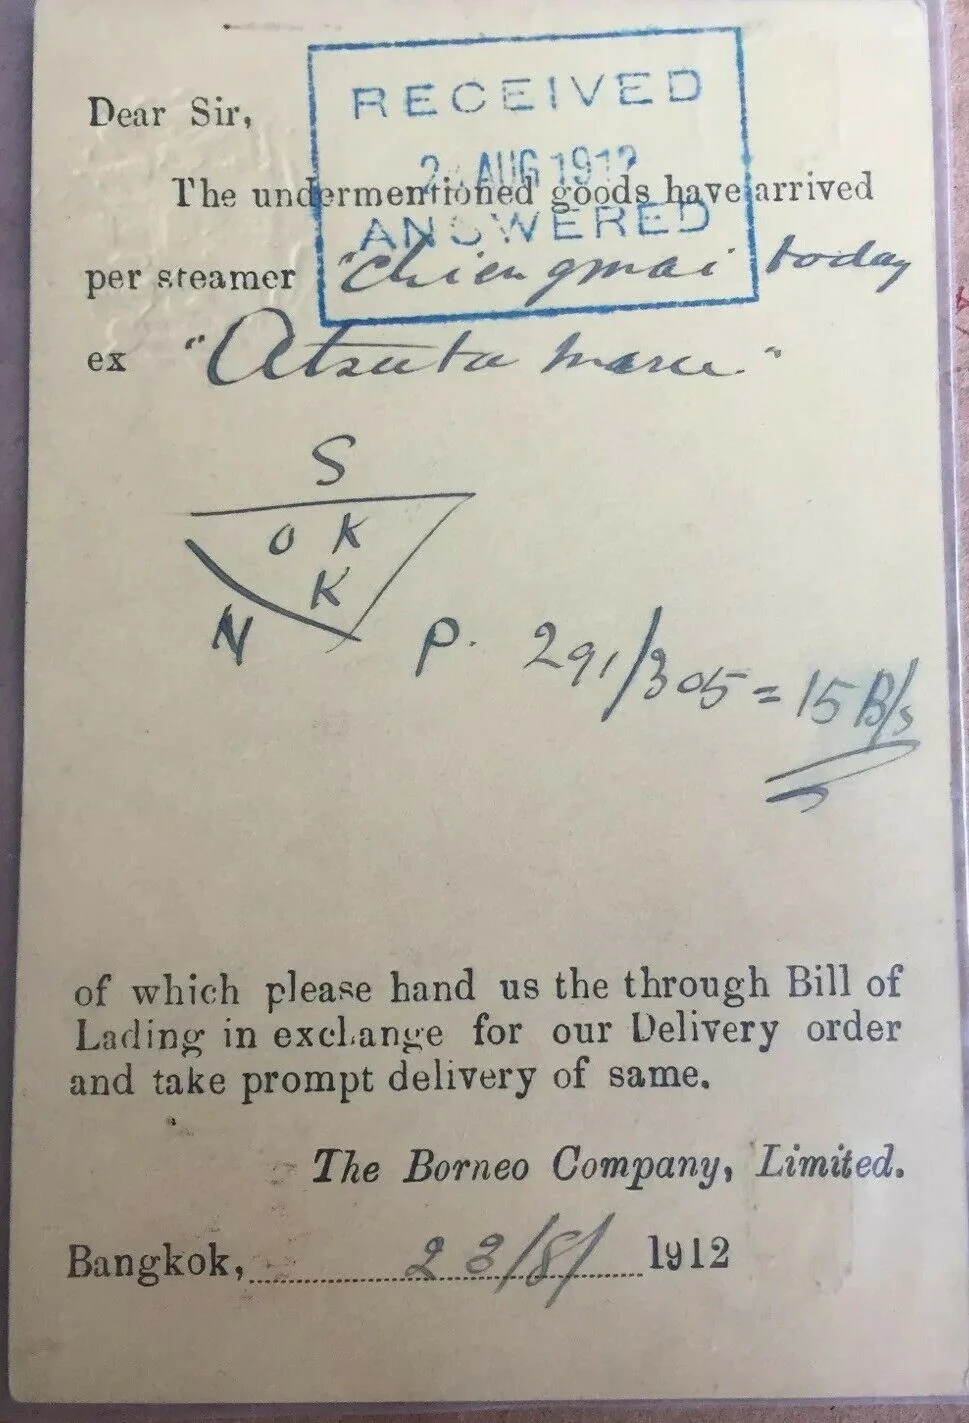 RECEIVED
Dear Sir,
AUG 1912
The undermentioned goods have arrived
ANSWERED
per steamer "Chiengmai today
ex "Atsuta Maru."
S
O K
K
N
P. 291/305 = 15 B/s
of which please hand us the through Bill of
Lading in exchange for our Delivery order
and take prompt delivery of same.
The Borneo Company, Limited.
Bangkok, 23/8/ 1912